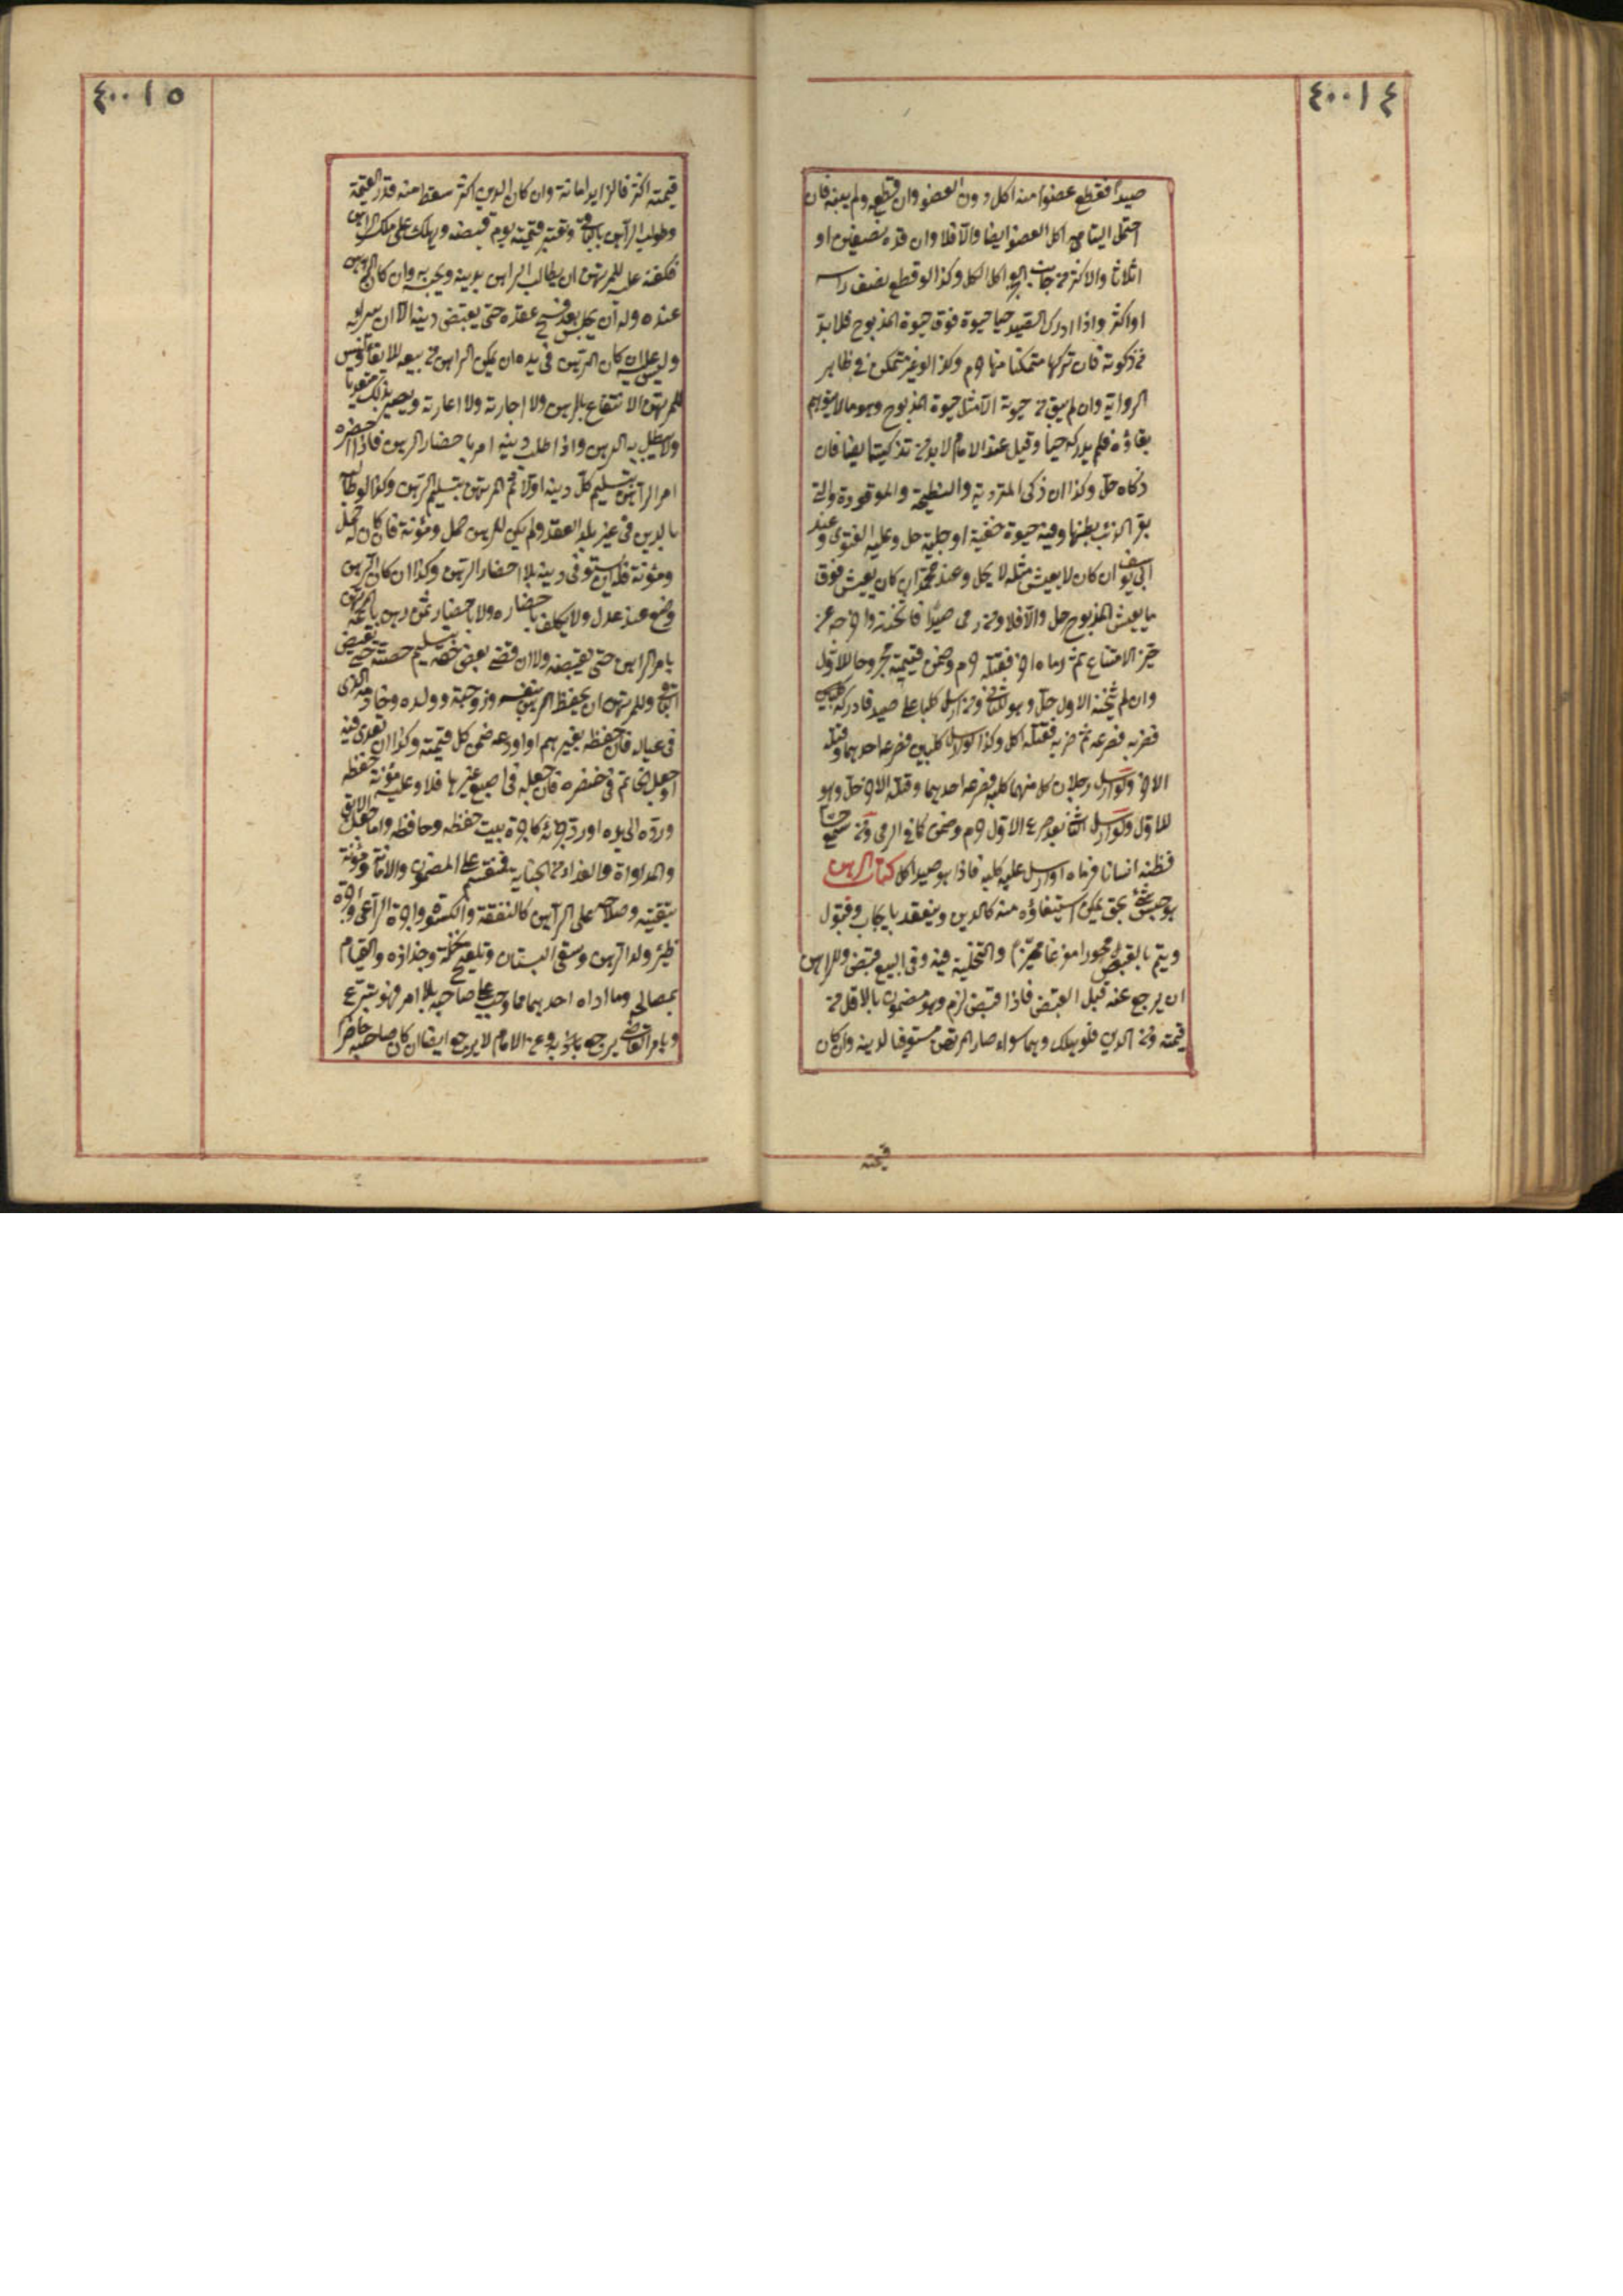 ٤٠٠١٤
صيدا فقطع عضوا منه اكل دون العضو وان قطعه ولم يبنه فان
احتمل التيامه اكل العضو ايضا والا فلا وان قده نصفين او
اثلاثا والاكثر من جانب العجز اكل الكل وكذا لو قطع نصف راسه
او اكثر واذا ادرك الصيد حيا حيوة فوق حيوة المذبوح فلا بد
من ذكوته فان تركها متمكنا منها حرم وكذا لو غير متمكن في ظاهر
الرواية وان لم يبق من حيوته الا مثل حيوة المذبوح وهو ما لا يتوهم
بقاؤه فلم يدركه حيا وقيل عند الامام لا بد من تذكيته ايضا فان
ذكاه حل وكذا ان ذكى المتردية والنطيحة والموقوذة والتي
بقر الذئب بطنها وفيه حيوة خفية او جلية حل وعليه الفتوى وعند
ابي يوسف ان كان لا يعيش مثله لا يحل وعند محمد ان كان يعيش فوق
ما يعيش المذبوح حل والا فلا ومن رمى صيدا فاثخنه واخرجه عن
حيز الامتناع ثم رماه اخر فقتله حرم وضمن قيمته مجروحا للاول
وان لم يثخنه الاول حل وهو للثاني ومن ارسل كلبا على صيد فادركه
فضربه فصرعه ثم ضربه فقتله اكل وكذا لو ارسل كلبين فصرعه احدهما وقتله
الاخر ولو ارسل رجلان كل منهما كلبه فصرعه احدهما وقتله الاخر حل وهو
للاول ولو ارسل الثاني بعد صرع الاول حرم وضمن كما في الرمي ومن سمع حسا
فظنه انسانا فرماه او ارسل عليه كلبه فاذا هو صيد اكل كتاب الرهن
هو حبس شئ بحق يمكن استيفاؤه منه كالدين وينعقد بايجاب وقبول
ويتم بالقبض محوزا مفرغا مميزا والتخلية فيه وفي البيع قبض وللراهن
ان يرجع عنه قبل القبض فاذا قبض لزم وهو مضمون بالاقل من
قيمته ومن الدين فلو هلك وهما سواء صار المرتهن مستوفيا لدينه وان كان
قيمته
٤٠٠١٥
قيمته اكثر فالزايد امانة وان كان الدين اكثر سقط منه قدر القيمة
وطولب الراهن بالباقي وتعتبر قيمته يوم قبضه ويهلك على ملك الراهن
فكفنه عليه للمرتهن ان يطالب الراهن بدينه ويحبسه به وان كان الرهن
عنده وله ان يحبسه بعد فسخ عقده حتى يقبض دينه الا ان يبرأه
وليس عليه ان كان الرهن في يده ان يمكن الراهن من بيعه للايفاء وليس
للمرتهن الانتفاع بالرهن ولا اجارته ولا اعارته ويصير بذلك متعديا
ولا يبطل به الرهن واذا طلب دينه امر باحضار الرهن فاذا احضره
امر الراهن بتسليم كل دينه اولا ثم المرتهن بتسليم الرهن وكذا لو طالبه
بالدين في غير بلد العقد ولم يكن للرهن حمل ومؤنة فان كان له حمل
ومؤنة فله ان يستوفي دينه بلا احضار الرهن وكذا ان كان الرهن
وضع عند عدل ولا يكلف باحضاره ولا باحضار ثمن رهن باعه المرتهن
بامر الراهن حتى يقبضه ولا ان قضى بعض حقه بتسليم حصته حتى يقبض
الباقي وللمرتهن ان يحفظ الرهن بنفسه وزوجته وولده وخادمه الذي
في عياله فان حفظه بغيرهم او اودعه ضمن كل قيمته وكذا ان تعدى فيه
او جعل الخاتم في خنصره فان جعله في اصبع غيرها فلا وعليه مؤنة حفظه
ورده الى يده او رد جزئه كاجرة بيت حفظه وحافظه واما جعل الابق
والمداواة والفداء من الجناية فتنقسم على المضمون والامانة ومؤنة
تبقيته وصلاحه على الراهن كالنفقة والكسوة واجرة الراعي واجرة
ظئر ولد الرهن وسقي البستان وتلقيح نخله وجذاذه والقيام
بمصالحه وما اداه احدهما مما وجب على صاحبه بلا امر فهو تبرع
وبامر القاضي يرجع به وعن الامام لا يرجع ايضا ان كان صاحبه حاضرا